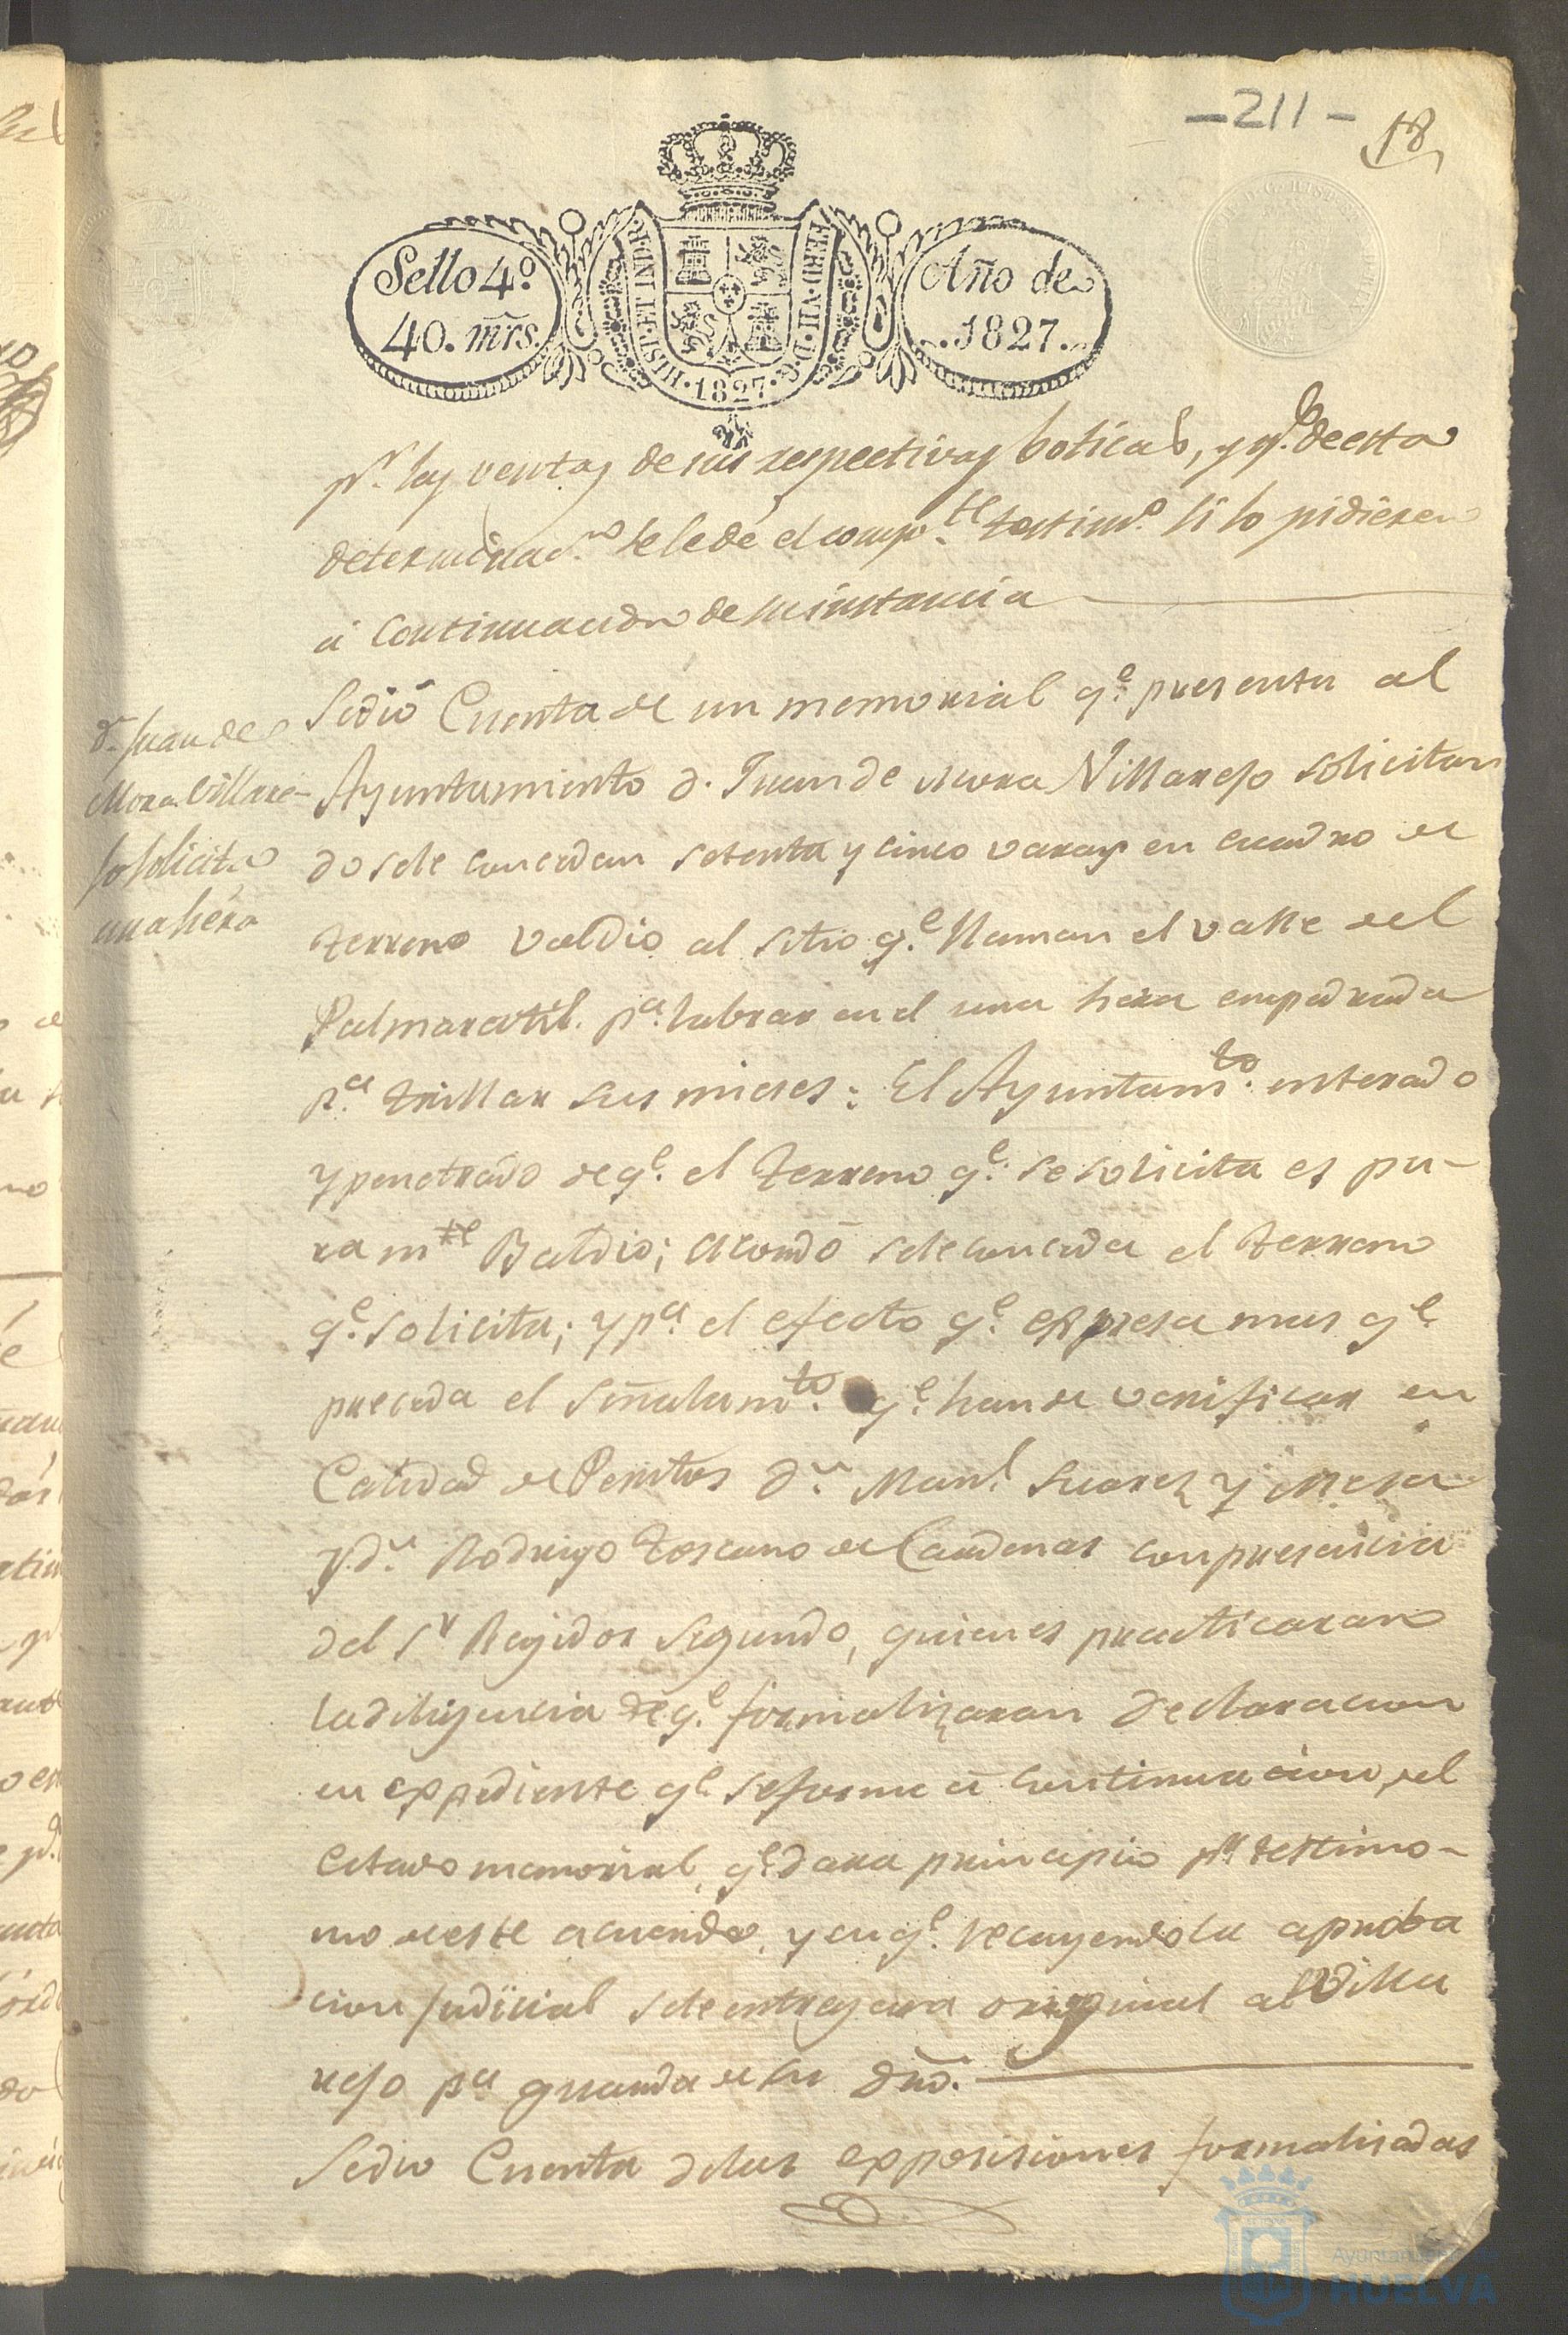 -211-
18
Sello 4º
40. mrs.
HISP. ET IND. R.
FERD. VII. D. G.
1827
Año de
1827.
pr. las ventas de sus respectivas boticas, y qe. de esta
determinacn. se le dé el compte. testimo. si lo pidieren
á continuacion de su instancia
Dn. Juan de
Mora Villare-
jo solicita
una hera
Se dió Cuenta de un memorial qe. presenta al
Ayuntamiento d. Juan de Mora Villarejo solicitan
do se le concedan setenta y cinco varas en cuadro de
terreno valdio al sitio qe. llaman el valle del
pa. labrar en el una hera empedrada
pa. trillar sus mieses: El Ayuntamto. enterado
y penetrado de qe. el terreno qe. se solicita es pu-
ramte Baldio; acordó se le conceda el terreno
qe. solicita; y pa. el efecto qe. expresa mas qe.
preceda el señalamto. qe. han de verificar en
Calidad de Peritos Dn. Manl. Suarez y Mesa
y Dn. Rodrigo Toscano de Cardenas con presencia
del Sr Regidor Segundo, quienes practicaran
la diligencia de qe. formalizaran declaracion
en expediente qe. se forme á continuacion del
citado memorial, qe. dara principio pr. testimo-
nio de este acuerdo, y en qe. recayendo la aproba
cion judicial se le entregara original al Villa
rejo pa guarda de su dro.
Se dio Cuenta de las exposiciones formalisadas
Ayuntamiento de
HUELVA